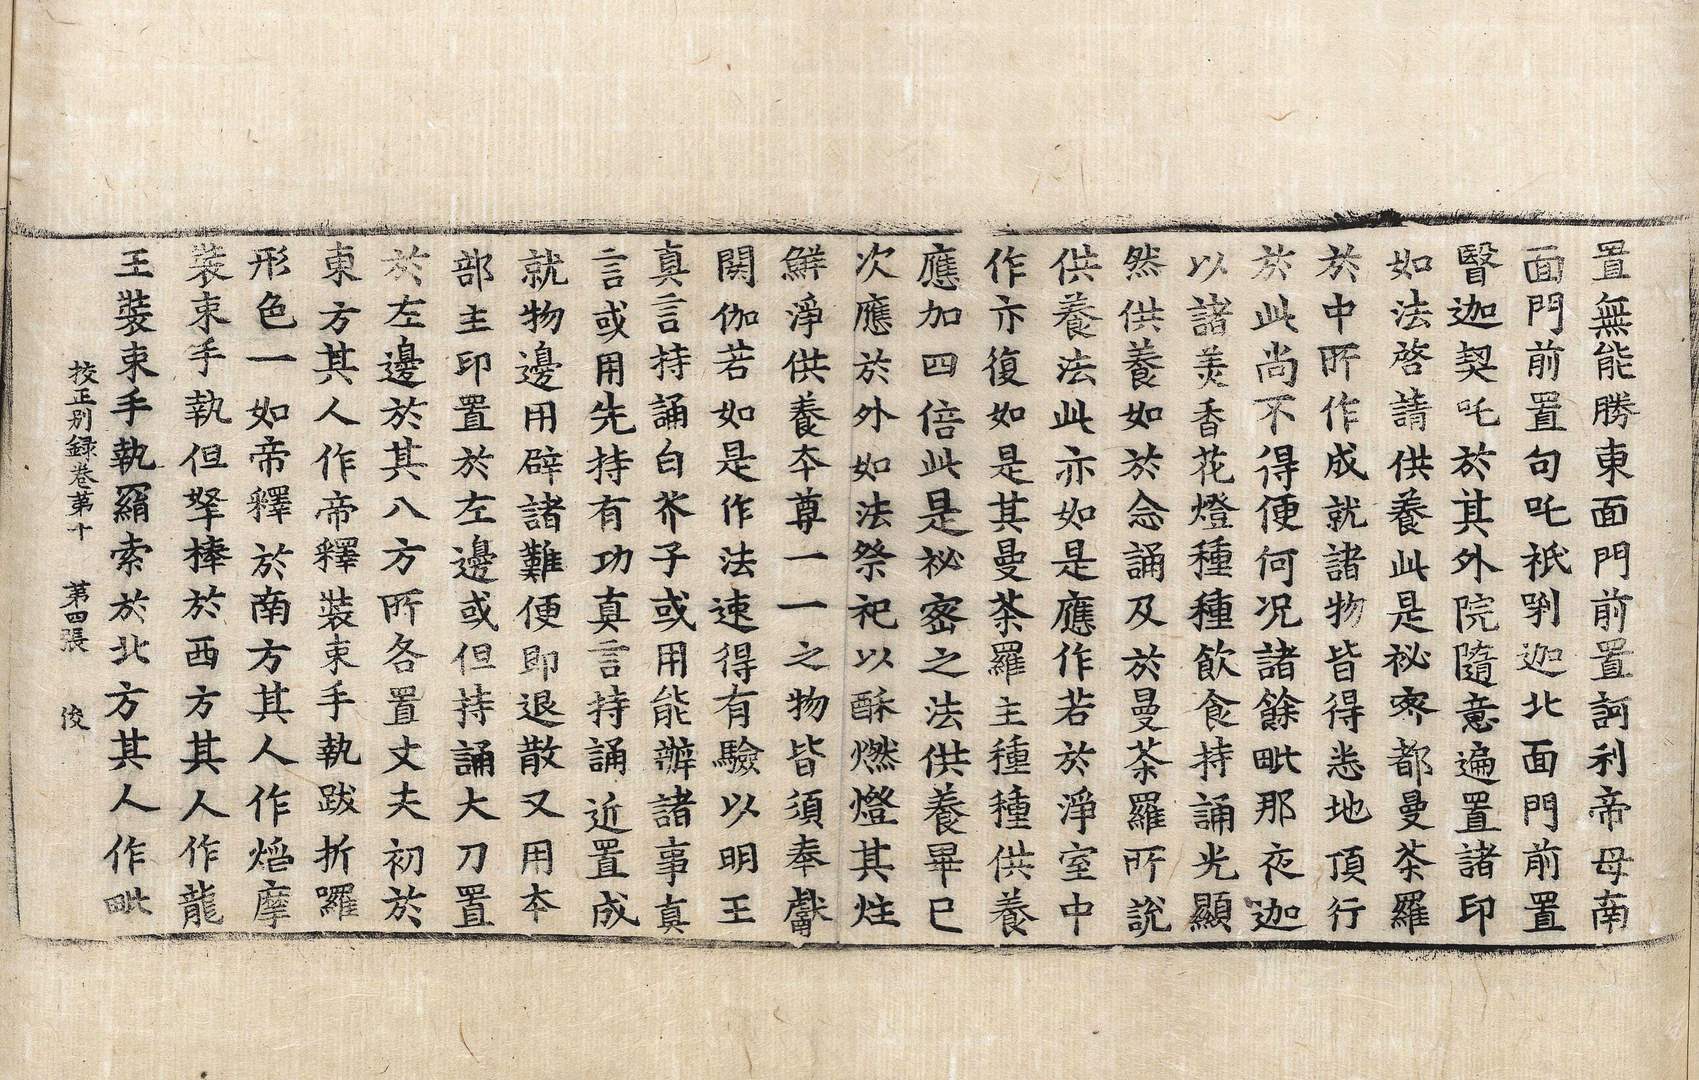 置無能勝東面門前置訶利帝母南
面門前置句吒祇唎迦北面門前置
翳迦契吒於其外院隨意遍置諸印
如法啓請供養此是祕密都曼荼羅
於中所作成就諸物皆得悉地頂行
於此尚不得便何況諸餘毗那夜迦
以諸美香花燈種種飲食持誦光顯
然供養如於念誦及於曼荼羅所說
供養法此亦如是應作若於淨室中
作亦復如是其曼荼羅主種種供養
應加四倍此是祕密之法供養畢已
次應於外如法祭祀以酥燃燈其炷
鮮淨供養本尊一一之物皆須奉獻
閼伽若如是作法速得有驗以明王
真言持誦白芥子或用能辦諸事真
言或用先持有功真言持誦近置成
就物邊用辟諸難便即退散又用本
部主印置於左邊或但持誦大刀置
於左邊於其八方所各置丈夫初於
東方其人作帝釋裝束手執跋折囉
形色一如帝釋於南方其人作焰摩
裝束手執但拏棒於西方其人作龍
王裝束手執羂索於北方其人作毗
校正别録卷第十 第四張 俊